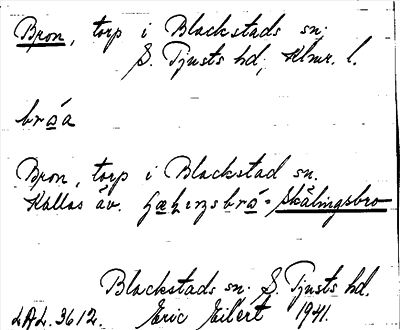 Bron, torp i Blackstads sn.
S. Tjusts hd, Klmr. l.
Bron, torp i Blackstad sn.
Kallas äv. Skälingsbro
Blackstads sn. S. Tjusts hd.
LAL. 3612. Eric Eilert 1941.